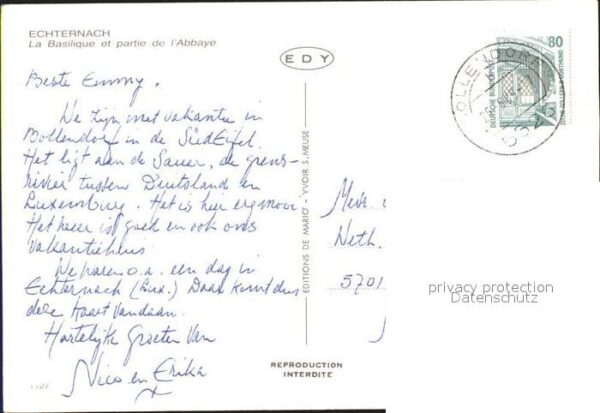 ECHTERNACH
La Basilique et partie de l'Abbaye
EDY
80
DEUTSCHE BUNDESPOST
OLLENDORF
Beste Emmy,
We zijn met vakantie in
Bollendorf in de SüdEifel.
Het ligt aan de Sauer, de grens-
rivier tussen Duitsland en
Luxemburg. Het is hier erg mooi.
Het weer is goed en ook ons
vakantiehuis.
We waren o.a. een dag in
Echternach (Lux.) Daar komt dus
deze kaart vandaan.
Hartelijke Groeten van
Nico en Erika
Mevr.
Neth.
5701
EDITIONS DE MARIO - YVOIR S. MEUSE
privacy protection
Datenschutz
REPRODUCTION
INTERDITE
1127